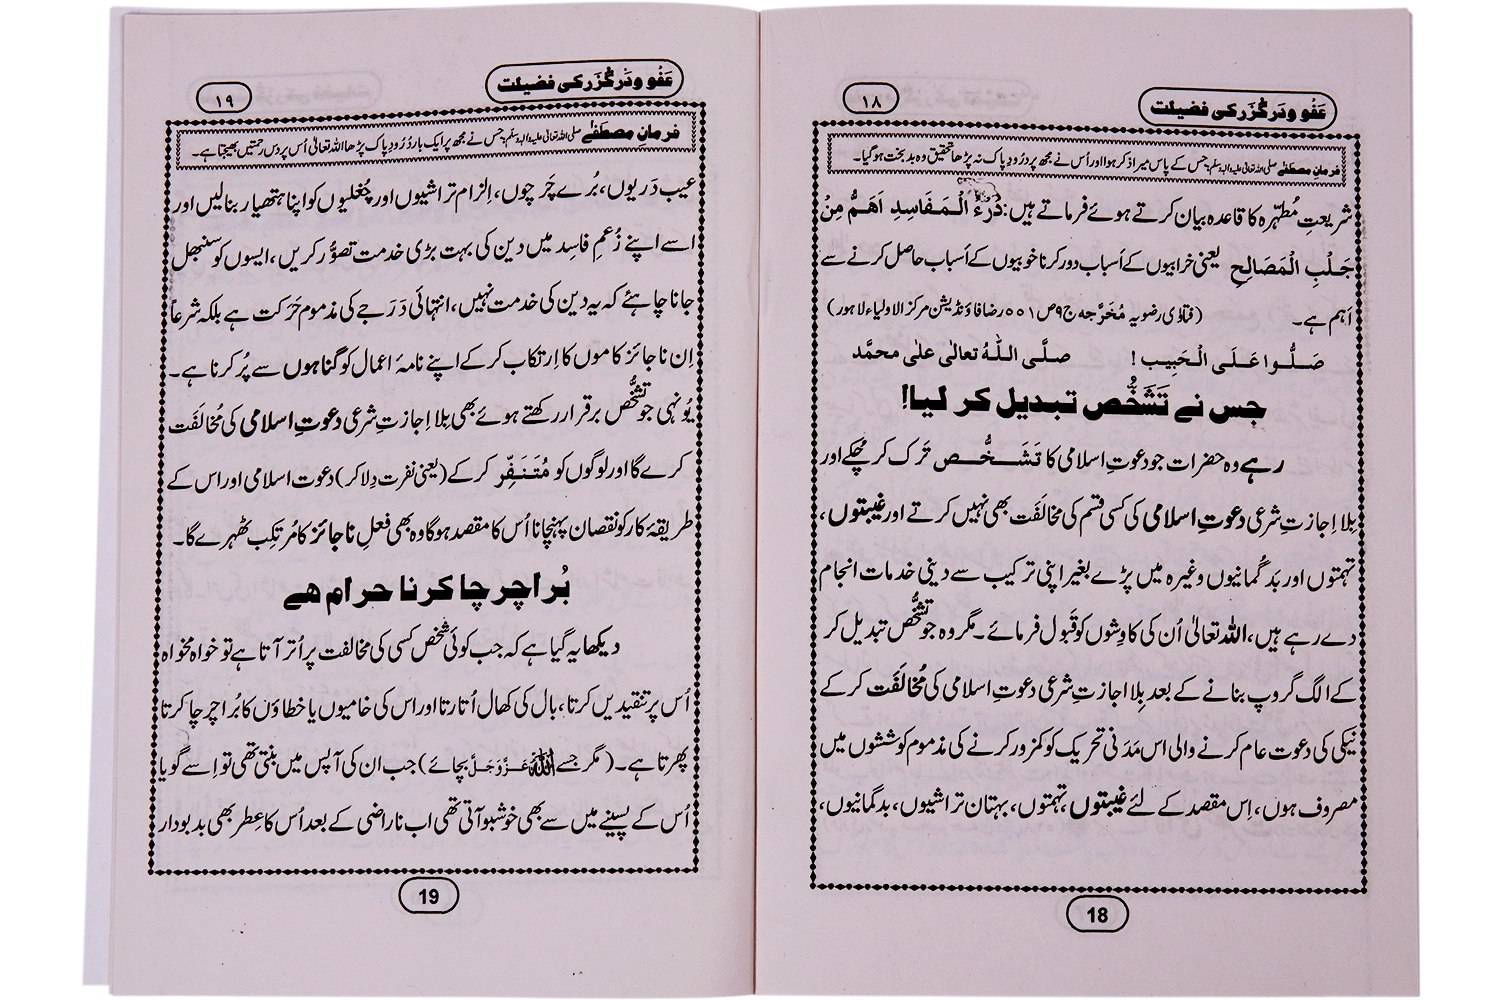 عَفْو و دَرگُزَر کی فضیلت
۱۸
فرمانِ مصطفٰے صلی اللہ تعالیٰ علیہ والہٖ وسلم: جس کے پاس میرا ذکر ہوا اور اُس نے مجھ پر درودِ پاک نہ پڑھا تحقیق وہ بد بخت ہوگیا۔
شریعتِ مُطہّرہ کا قاعدہ بیان کرتے ہوئے فرماتے ہیں: دَرْءُ الْمَفَاسِدِ اَھَمُّ مِنْ
جَلْبِ الْمَصَالِحِ یعنی خرابیوں کے اَسباب دور کرنا خوبیوں کے اَسباب حاصل کرنے سے
اَہم ہے۔ (فتاوٰی رضویہ مُخَرَّجہ ج۹ ص۵۵۱ رضا فاؤنڈیشن مرکز الاولیاء لاہور)
صَلُّوا عَلَی الْحَبِیب ! صلَّی اللہُ تعالٰی علٰی محمَّد
جس نے تَشَخُّص تبدیل کر لیا!
رہے وہ حضرات جو دعوتِ اسلامی کا تَشَخُّص تَرک کر چُکے اور
بِلا اِجازتِ شرعی دعوتِ اسلامی کی کسی قسم کی مخالَفَت بھی نہیں کرتے اور غیبتوں،
تہمتوں اور بَدگُمانیوں وغیرہ میں پڑے بغیر اپنی ترکیب سے دینی خدمات انجام
دے رہے ہیں، اللہ تعالیٰ اُن کی کاوِشوں کو قَبول فرمائے۔ مگر وہ جو تَشَخُّص تبدیل کر
کے الگ گروپ بنانے کے بعد بِلا اجازتِ شرعی دعوتِ اسلامی کی مُخالَفَت کر کے
نیکی کی دعوت عام کرنے والی اس مَدَنی تحریک کو کمزور کرنے کی مذموم کوششوں میں
مصروف ہوں، اِس مقصد کے لئے غیبتوں، تہمتوں، بہتان تراشیوں، بدگمانیوں،
18
عَفْو و دَرگُزَر کی فضیلت
۱۹
فرمانِ مصطفٰے صلی اللہ تعالیٰ علیہ والہٖ وسلم: جس نے مجھ پر ایک بار دُرُودِ پاک پڑھا اللہ تعالیٰ اُس پر دس رحمتیں بھیجتا ہے۔
عیب دَریوں، بُرے چَرچوں، اِلزام تراشیوں اور چُغلیوں کو اپنا ہتھیار بنالیں اور
اسے اپنے زُعمِ فاسِد میں دین کی بہت بڑی خدمت تصوُّر کریں، ایسوں کو سنبھل
جانا چاہئے کہ یہ دین کی خدمت نہیں، انتہائی دَرَجے کی مذموم حَرَکت ہے بلکہ شرعاً
اِن ناجائز کاموں کا اِرتکاب کر کے اپنے نامۂ اعمال کو گناہوں سے پُر کرنا ہے۔
یُونہی جو تَشَخُّص برقرار رکھتے ہوئے بھی بِلا اِجازتِ شرعی دعوتِ اسلامی کی مُخالَفَت
کرے گا اور لوگوں کو مُتَنَفِّر کر کے (یعنی نفرت دِلا کر) دعوتِ اسلامی اور اس کے
طریقۂ کار کو نقصان پہنچانا اُس کا مقصد ہوگا وہ بھی فعلِ ناجائز کا مُرتکِب ٹھہرے گا۔
بُرا چرچا کرنا حرام ھے
دیکھا یہ گیا ہے کہ جب کوئی شخص کسی کی مخالفت پر اُتر آتا ہے تو خواہ مخواہ
اُس پر تنقیدیں کرتا، بال کی کھال اُتارتا اور اس کی خامیوں یا خطاؤں کا بُرا چرچا کرتا
پھرتا ہے۔ (مگر جسے اللہ عَزَّوَجَلَّ بچائے) جب ان کی آپس میں بنتی تھی تو اِسے گویا
اُس کے پسینے میں سے بھی خوشبو آتی تھی اب ناراضی کے بعد اُس کا عِطر بھی بدبودار
19